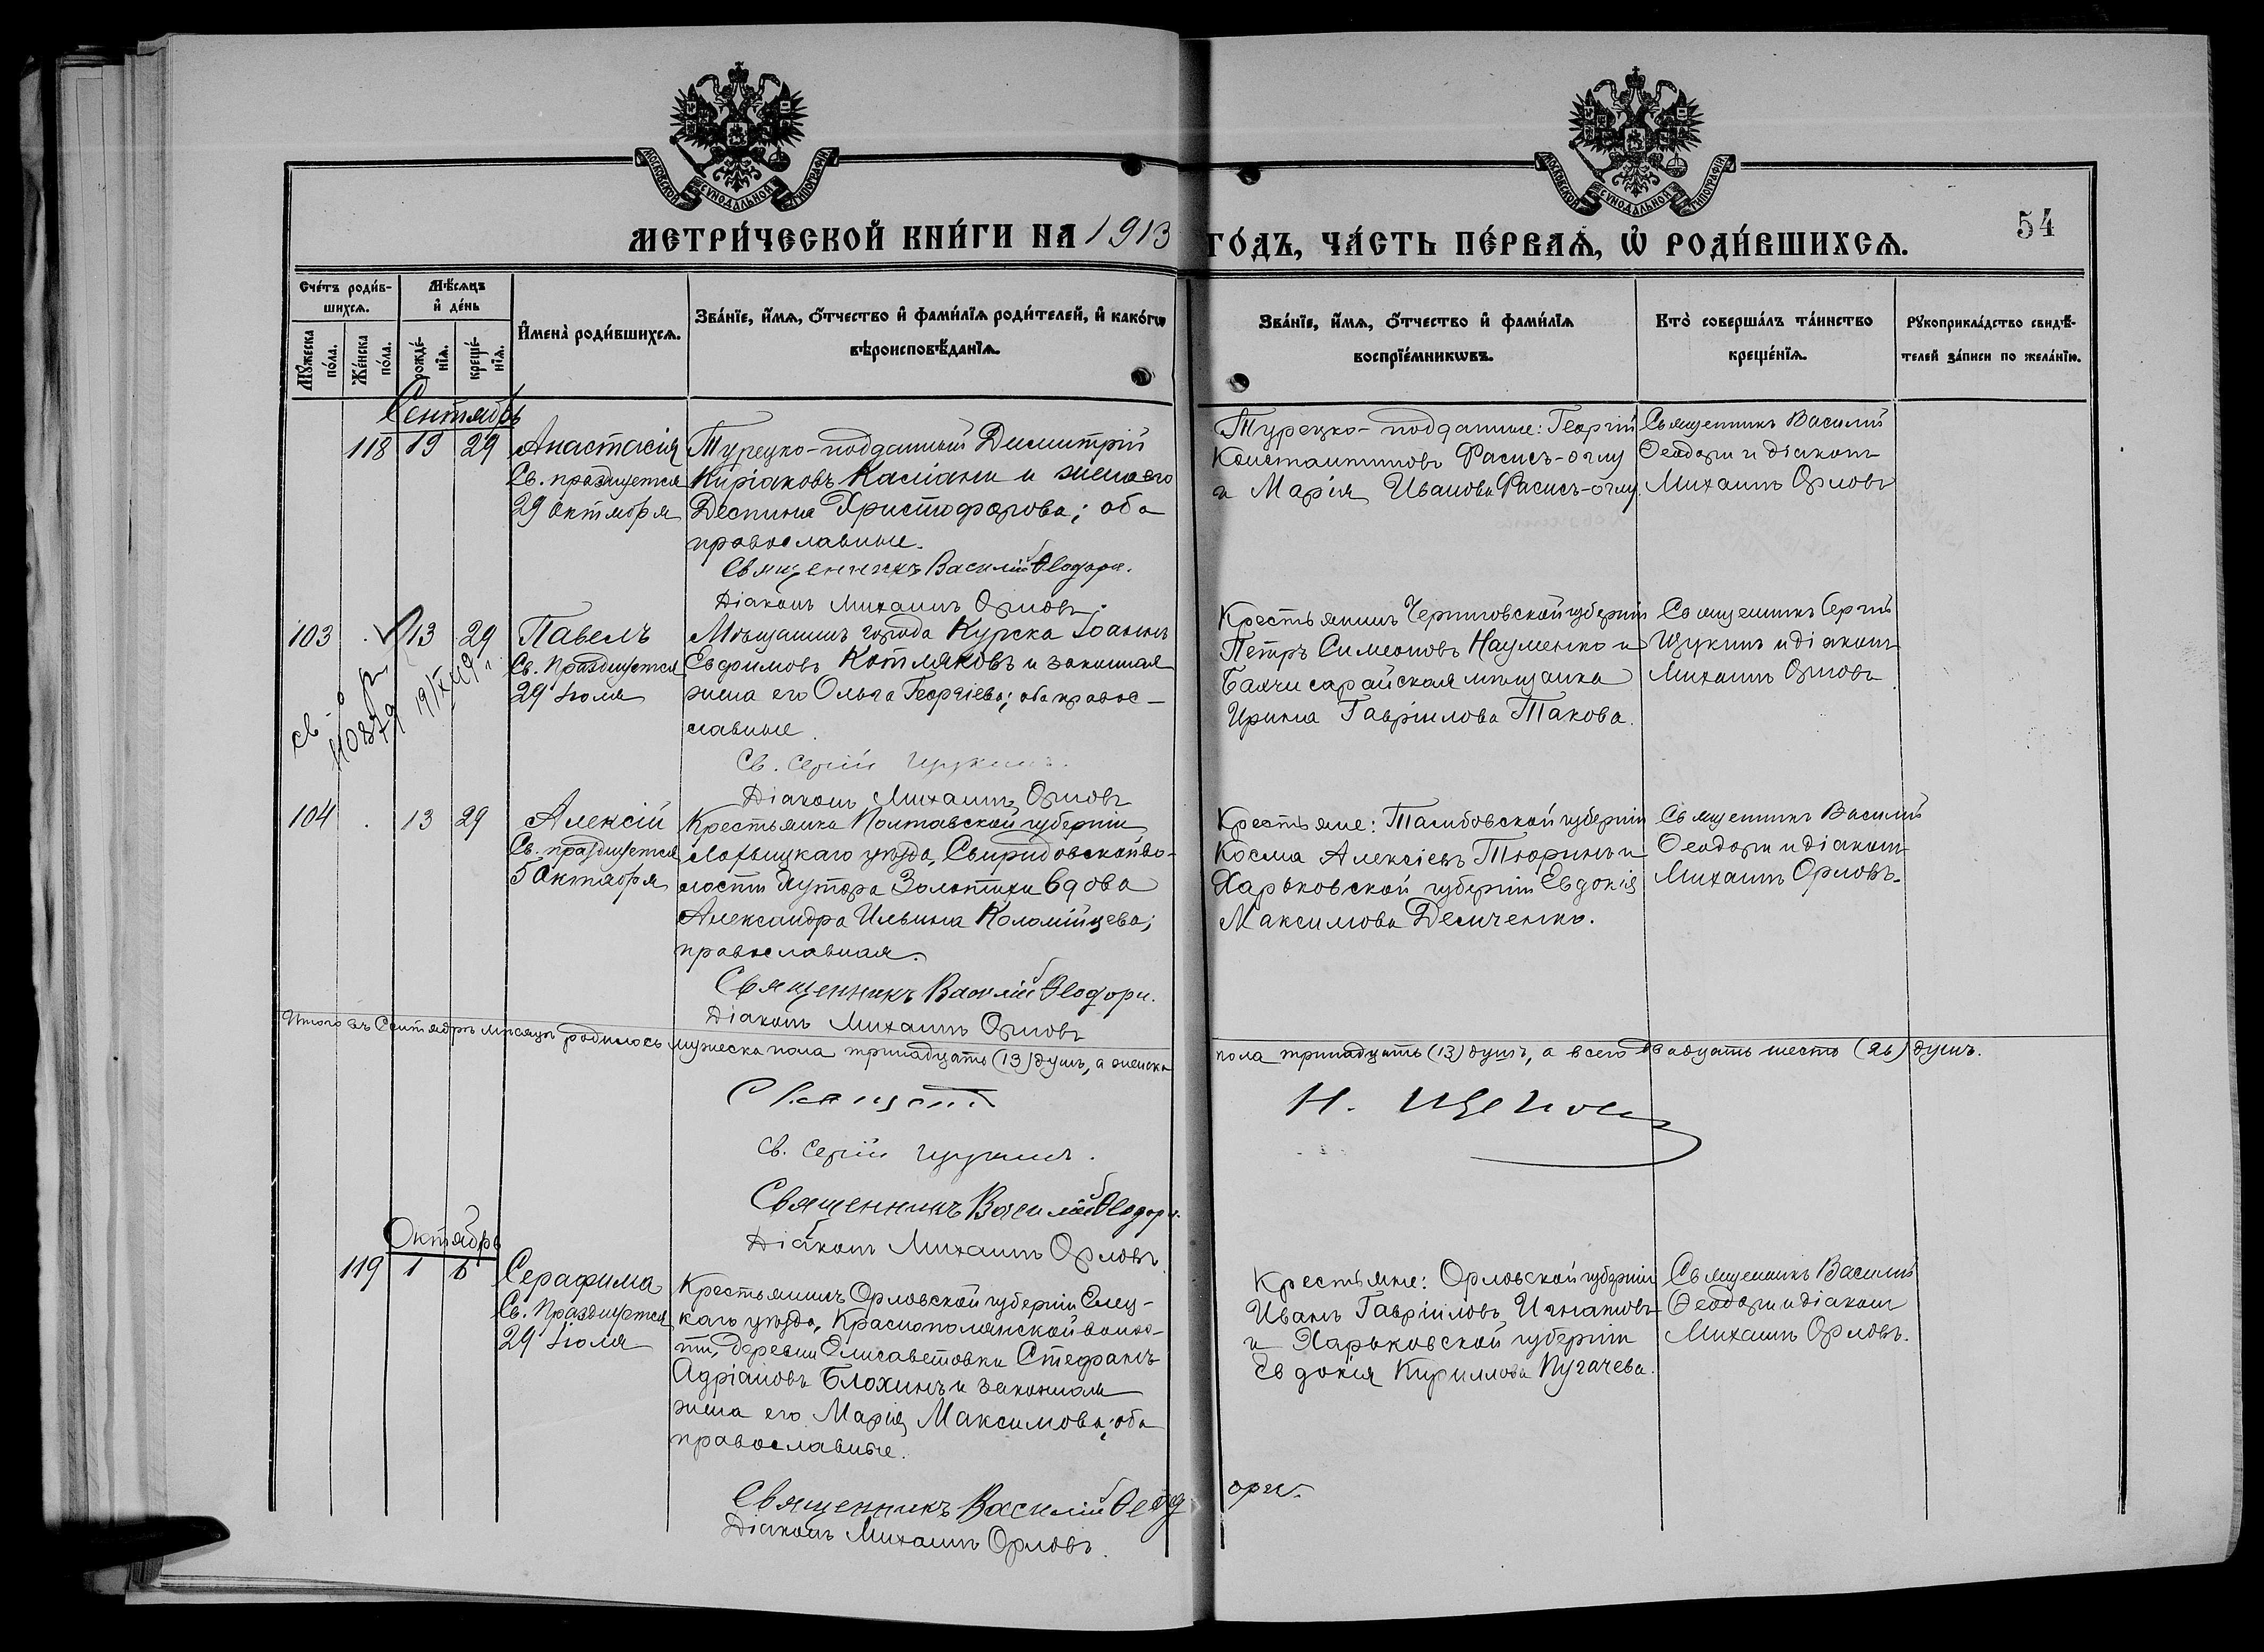 МОСКОВСКОЙ СѴНОДАЛЬНОЙ ТИПОГРАФІИ
МОСКОВСКОЙ СѴНОДАЛЬНОЙ ТИПОГРАФІИ
МЕТРИ́ЧЕСКОЙ КНИ́ГИ НА 1913
ГО́ДЪ, ЧА́СТЬ ПЕ́РВАѦ, Ѡ҆ РОДИ́ВШИХСѦ.
54
Сче́тъ роди́в-
шихсѧ.
Мѣ́сѧцъ
и҆ де́нь
И҆мена̀ роди́вшихсѧ.
Зва́нїе, и҆́мѧ, ѻ҆́тчество и҆ фами́лїѧ роди́телей, и҆ како́гѡ
вѣроисповѣ́данїѧ.
Мꙋ́жеска
по́ла.
Же́нска
по́ла.
рожде́-
нїѧ.
креще́-
нїѧ.
Зва́нїе, и҆́мѧ, ѻ҆́тчество и҆ фами́лїѧ
воспрїе́мникѡвъ.
Кто̀ соверша́лъ та́инство
креще́нїѧ.
Рꙋкоприкла́дство свидѣ́-
телей за́писи по жела́нїю.
Сентябрь
118 19 29 Анастасія
Св. празднуется
29 Октября
Турецко-подданный Димитрій
Киріаковъ Касіани и жена его
Деспина Христофорова; оба
православные.
Священникъ Василій Ѳеодори.
Діаконъ Михаилъ Орловъ.
Турецко-подданные: Георгій
Константиновъ Фасисъ-оглу
и Марія Иванова Фасисъ-оглу.
Священникъ Василій
Ѳеодори и діаконъ
Михаилъ Орловъ
103 13 29 Павелъ
Св. Празднуется
29 Іюля
св-о
110879
Мѣщанинъ города Курска Іоаннъ
Евфимовъ Котляковъ и законная
жена его Ольга Георгіева; оба правос-
славные.
Св. Сергій Щукинъ.
Діаконъ Михаилъ Орловъ
Крестьянинъ Черниговской губерніи
Петръ Симеоновъ Науменко и
Бахчисарайская мѣщанка
Ирина Гавріилова Такова.
Священникъ Сергій
Щукинъ и діаконъ
Михаилъ Орловъ.
104 13 29 Алексій
Св. празднуется
5 Октября
Крестьянка Полтавской губерніи
Лохвицкаго уѣзда, Свиридовской во-
лости Хутора Золотихи вдова
Александра Ильина Коломійцева;
православная.
Священникъ Василій Ѳеодори.
Діаконъ Михаилъ Орловъ
Крестьяне: Тамбовской губерніи
Косма Алексіевъ Тюринъ и
Харьковской губерніи Евдокія
Максимова Демченко.
Священникъ Василій
Ѳеодори и діаконъ
Михаилъ Орловъ.
Итого въ Сентябрѣ мѣсяцѣ родилось мужеска пола тринадцать (13) душъ, а женска
пола тринадцать (13) душъ, а всего двадцать шесть (26) душъ.
Св. Сергій Щукинъ.
Священникъ Василій Ѳеодори.
Діаконъ Михаилъ Орловъ.
Октябрь
119 1 6 Серафима
Св. Празднуется
29 Іюля
Крестьянинъ Орловской губерніи Елец-
каго уѣзда, Краснополянской волос-
ти, деревни Елисаветовки Стефанъ
Адріановъ Блохинъ и законная
жена его Марія Максимова; оба
православные.
Священникъ Василій Ѳеодори.
Діаконъ Михаилъ Орловъ.
Крестьяне: Орловской губерніи
Иванъ Гавріиловъ Игнатовъ
и Харьковской губерніи
Евдокія Кириллова Пугачева.
Священникъ Василій
Ѳеодори и діаконъ
Михаилъ Орловъ.